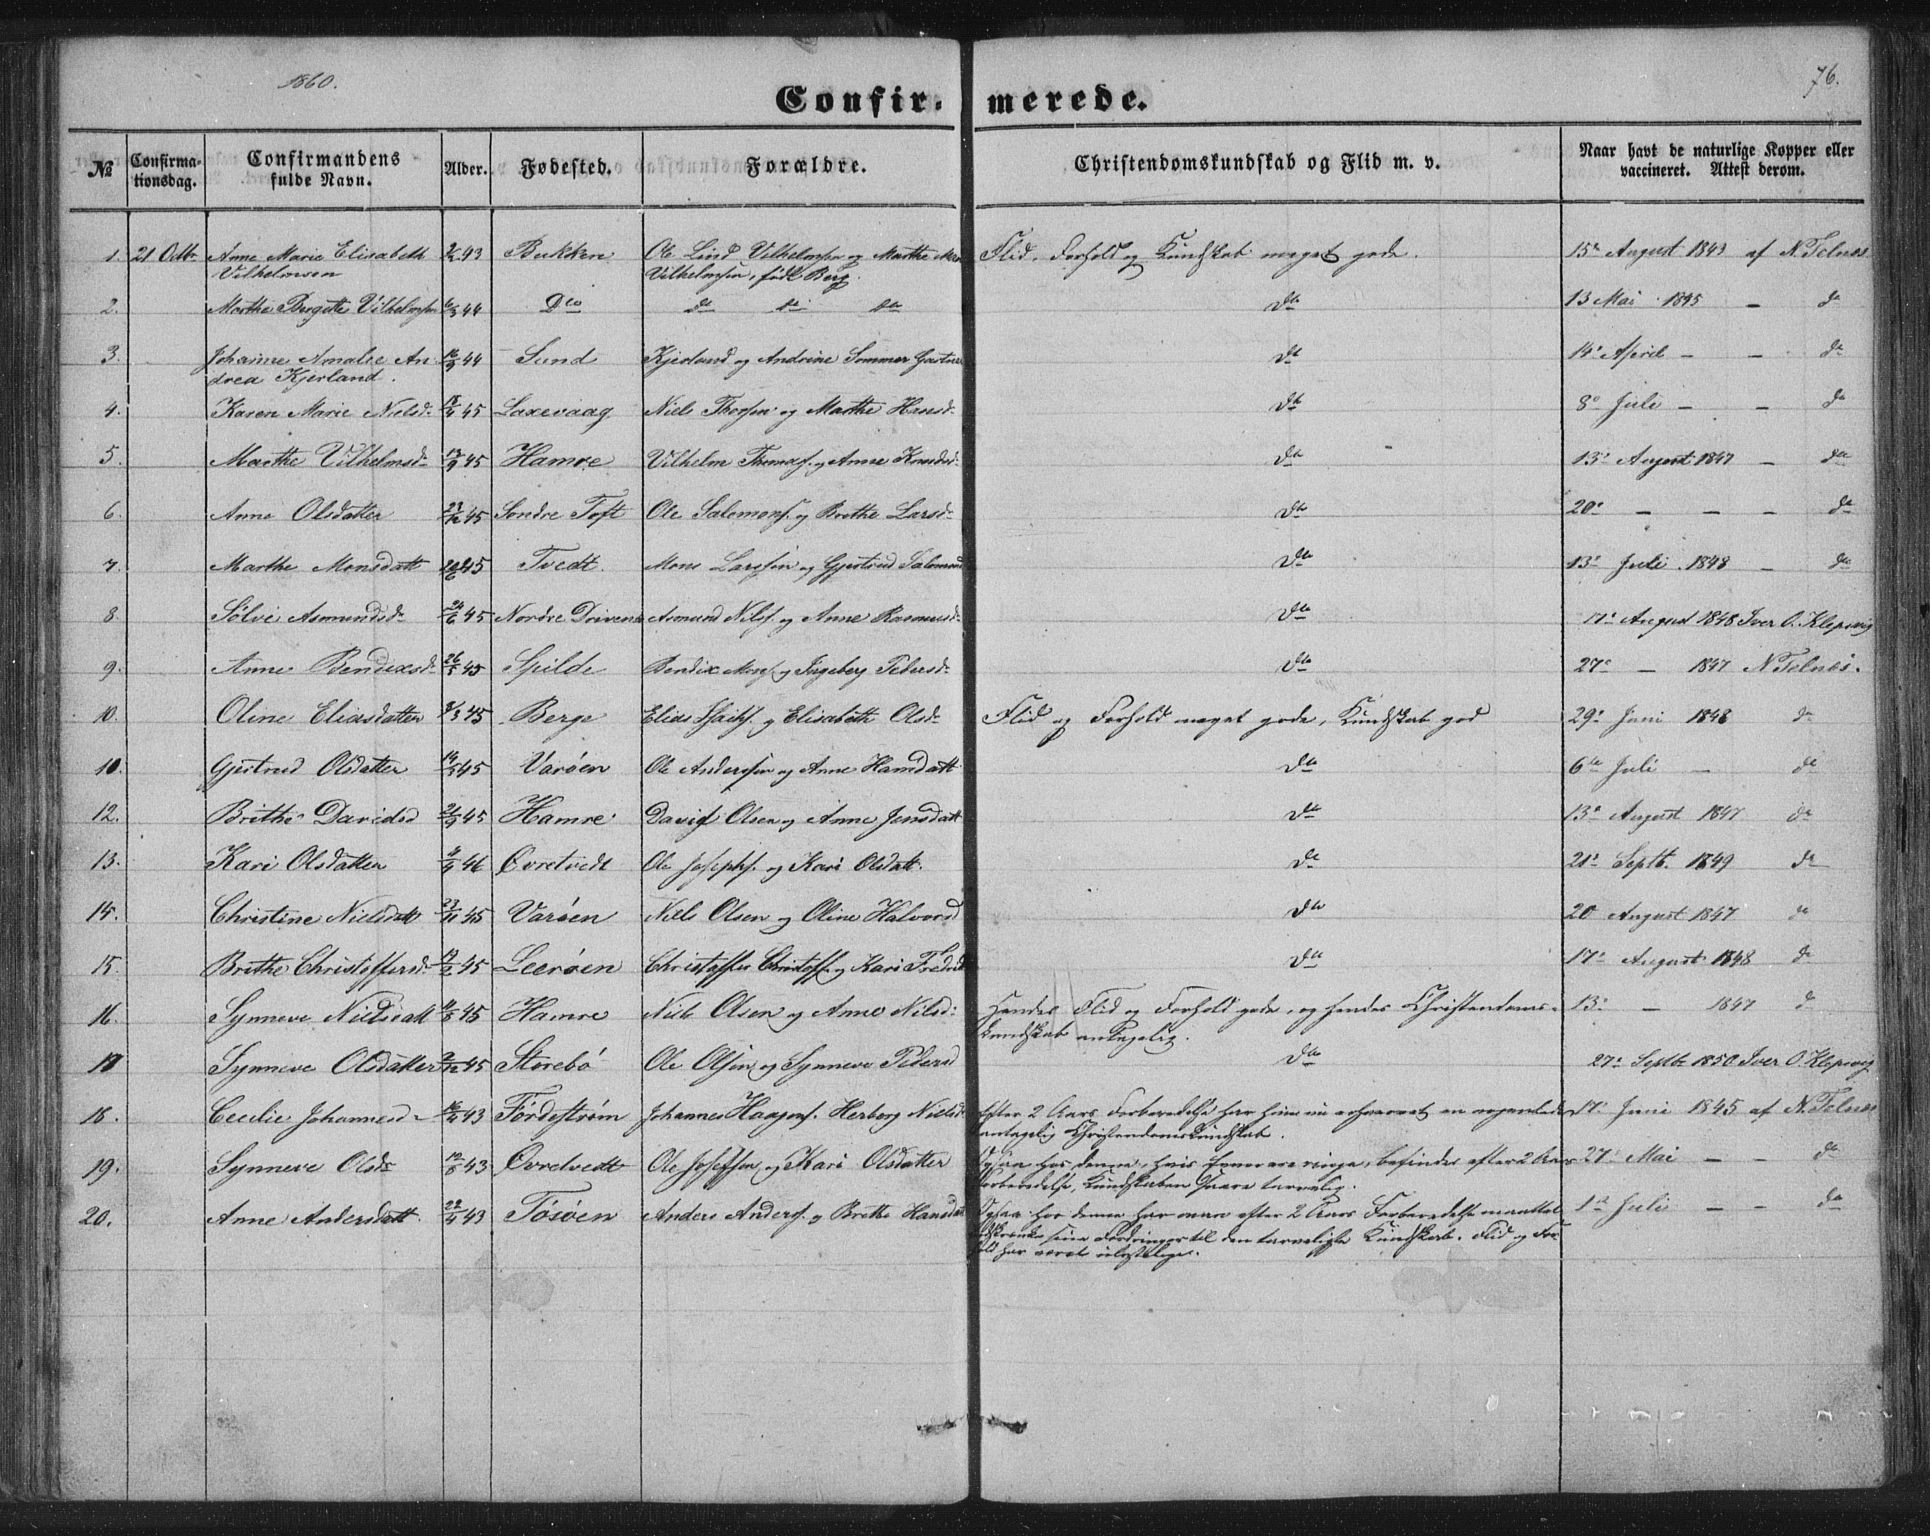 1860.
76.
Confir- merede.
№ Confirma-tionsdag. Confirmandens fulde Navn. Alder. Fødested. Forældre. Christendomskundskab og Flid m. v. Naar havt de naturlige Kopper eller vaccineret. Attest derom.
1. 21 Octbr. Anne Marie Elisabeth 93 Bukken Ole Lind Vilhelmsen og Marthe Flid, Forhold og Kundskab meget gode. 15de August 1843 af N. Telnes
Vilhelmsen Vilhelmsen, født Berg.
2. Marthe Bergitte Vilhelmsen 44 Dto do do do dto 13 Mai 1845 — do
3. Johanne Amalie An- 44 Sund Kjerland og Andrine Sommer dto 14de April — — do
drea Kjerland.
4. Karen Marie Nielsd. 45 Laxevaag Niels Thorsen og Marthe Hansd. dto 8de Juli — — do
5. Marthe Vilhelmsd. 45 Hamre Vilhelm Thomas. og Anne Knudsd. dto 13de August 1847 — do
6. Anne Olsdatter 45 Søndre Toft Ole Salomons. og Brithe Larsd. dto 20de — — — do
7. Marthe Monsdatt 45 Tvedt. Mons Larssen og Gjertrud Salomonsd dto 13de Juli 1848 — do
8. Sølvi Asmundsd. 24/6 45 Nordre Drivenes Asmund Nilss. og Anne Rasmusd. dto 17de August 1848 Iver O. Klepsvig
9. Anne Bendixsd. 45 Spilde Bendix Mons. og Ingeberg Pedersd. dto 27de — 1847 N Telnes.
10. Oline Eliasdatter 45 Berge Elias Isaks. og Elisabeth Olsd. Flid og Forhold meget gode, Kundskab god 29de Juni 1848 do
10. Gjertrud Olsdatter 45 Varøen Ole Anderssen og Anne Hansdatt dto 6te Juli — do
12. Brithe Davidsd 45 Hamre David Olsen og Anne Jensdatt dto 13de August 1847 do
13. Kari Olsdatter 46 Øvretvedt Ole Josephs. og Kari Olsdatt. do 21de Septb. 1849 do
14. Christine Nielsdatt 23/11 45 Varøen Niels Olsen og Oline Halvorsd dto 20 August 1847 do
15. Brithe Christoffersd. 45 Leerøen Christoffer Christoff. og Kari Fredrik dto 17de August 1848 do
16. Synneve Nielsdatt 45 Hamre Niels Olsen og Anne Nilsd. Hendes Flid og Forhold gode, og hendes Christendoms- 13de — 1847 do
kundskab antagelig.
17 Synneve Olsdatter 45 Storebø Ole Olsen og Synneve Pedersd dto 27de Septb 1850 Iver O. Klepsvig
18. Cecilie Johannesd. 43 Førdestrøm Johannes Haagens. Herborg Nielsd. Efter 2 Aars Forberedelse har hun nu erhvervet en 17de Juni 1845 af N. Telnes
antagelig Christendomskundskab.
19. Synneve Olsd. 43 Øvretvedt Ole Josefsen og Kari Olsdatter Ogsaa hos denne, hvis Evner ere ringe, befindes efter 2 Aars 27de Mai — — do
Forberedelse, Kundskaben tarvelig.
20. Anne Andersdatt. 43 Tøsøen Anders Anders. og Brithe Hansdatt Ogsaa hos denne har man efter 2 Aars Forberedelse maattet 1ste Juli — — do
indskrænke sine Fordringer til den tarveligste Kundskab. Flid og For-
hold har været